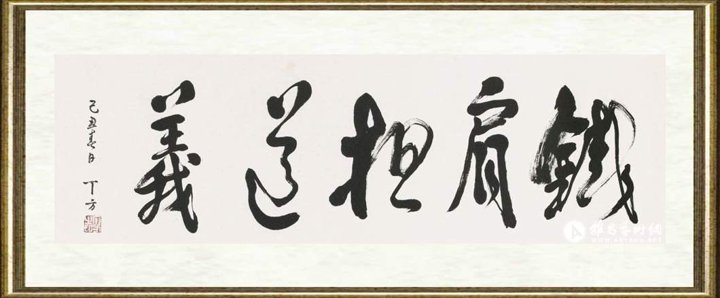 鐵肩担道義
己丑春日 丁方
雅昌艺术网